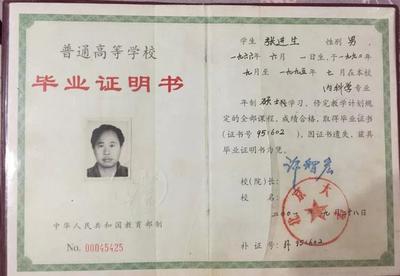 普通高等学校
毕业证明书
中华人民共和国教育部制
No. 00045425
学生 张进生 性别 男
一九六六年 六月 一日生,于一九九二年
九月至一九九五年 七月在本校
内科学专业
年制 硕士 学习,修完教学计划规
定的全部课程,成绩合格,取得毕业证书
(证书号 951602 ),因证书遗失,兹具
毕业证明书为凭。
校(院)长: 许智宏
校 名:
北京大学
年 九月 十八日
补 证 号: 951602